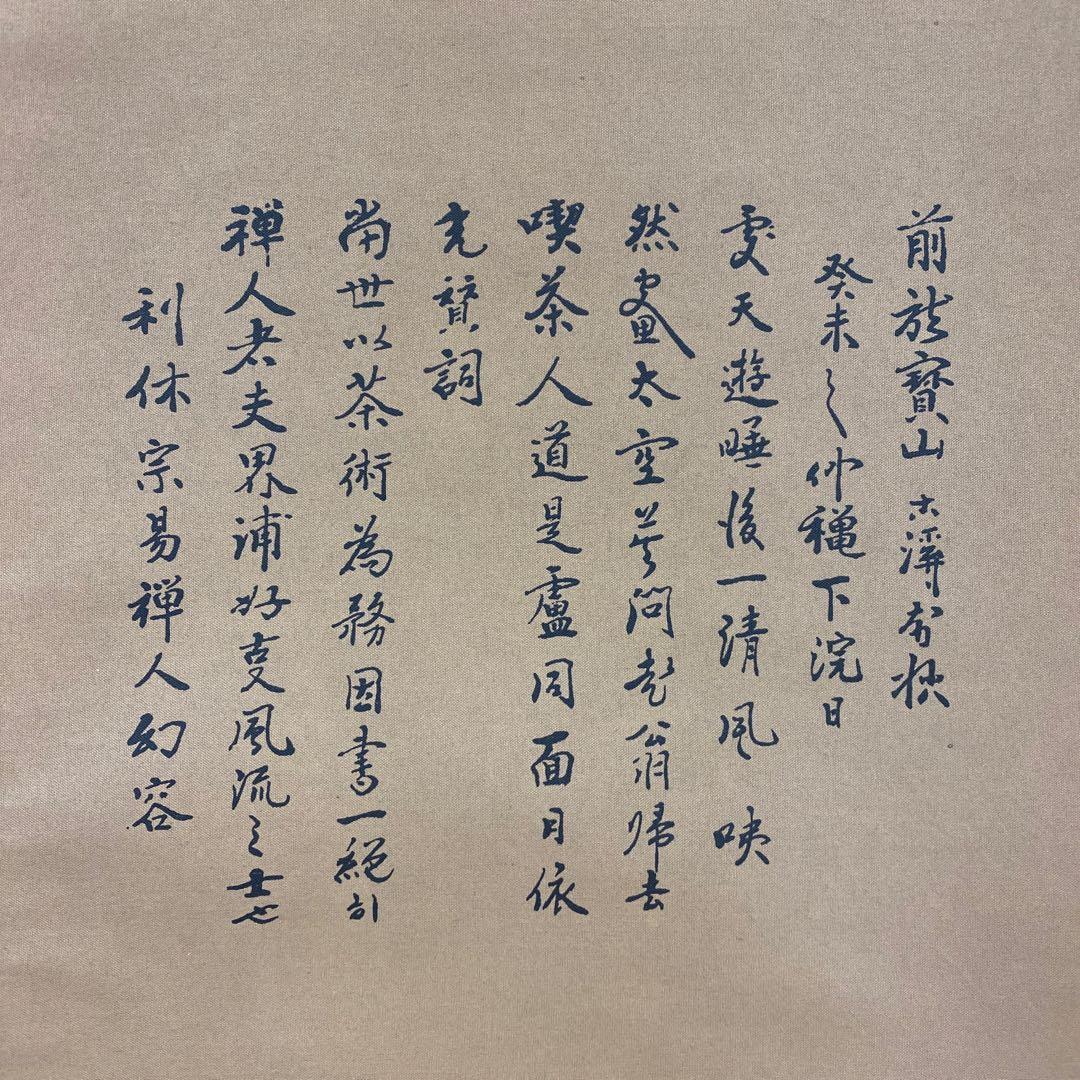 利休宗易禅人幻容
禅人老夫界浦好風流之士也
當世以茶術為務因書一絶
充賛詞
喫茶人道是盧同面目依
然太空若問老翁帰去
處天遊睡後一清風 咦
癸未之仲穐下浣日
前龍寶山